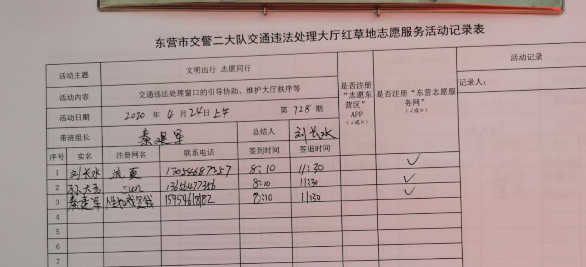 东营市交警二大队交通违法处理大厅红草地志愿服务活动记录表
活动主题 文明出行 志愿同行 是否注册“志愿东营区”APP(√或×) 是否注册“东营志愿服务网”(√或×) 活动记录
活动内容 交通违法处理窗口的引导协助、维护大厅秩序等 记录人:
活动日期 2020 年 4 月 24日上午 第 728 期
带班组长 秦建军 总结人 刘长水
序号 实名 注册网名 联系电话 签到时间 签退时间
1 刘长水 8:10 11:30 √
2 孙大玉 sun 8:10 11:30 √
3 秦建军 8:10 11:30 √
4
5
6
7